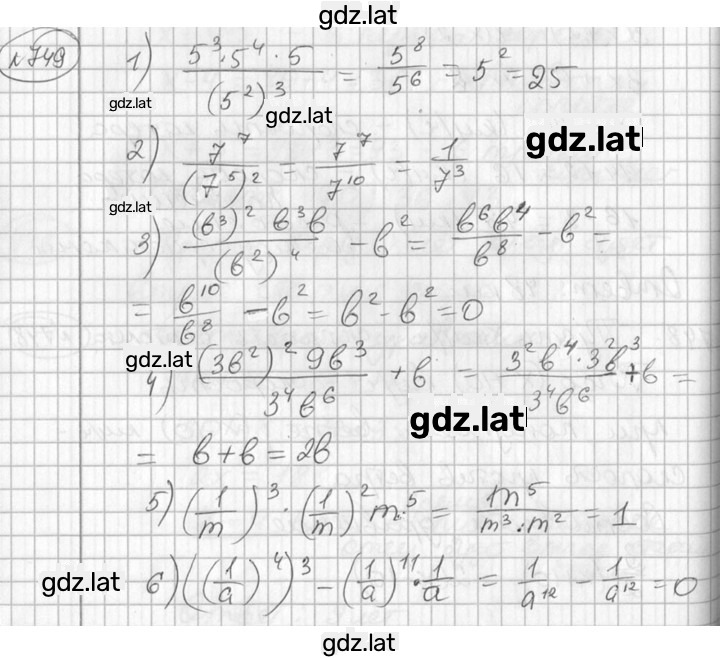 gdz.lat
№749
1) 5³·5⁴·5 / (5²)³ = 5⁸/5⁶ = 5² = 25
gdz.lat
gdz.lat
gdz.lat
2) 7⁷/(7⁵)² = 7⁷/7¹⁰ = 1/7³
gdz.lat
3) (b³)² b³b / (b²)⁴ - b² = b⁶b⁴/b⁸ - b² =
= b¹⁰/b⁸ - b² = b² - b² = 0
gdz.lat
4) (3b²)² 9b³ / 3⁴b⁶ + b = 3²b⁴·3²b³ / 3⁴b⁶ + b =
gdz.lat
= b + b = 2b
5) (1/m)³ · (1/m)² m·⁵ = m⁵ / m³:m² = 1
gdz.lat
6) ((1/a)⁴)³ - (1/a)¹¹ · 1/a = 1/a¹² - 1/a¹² = 0
gdz.lat